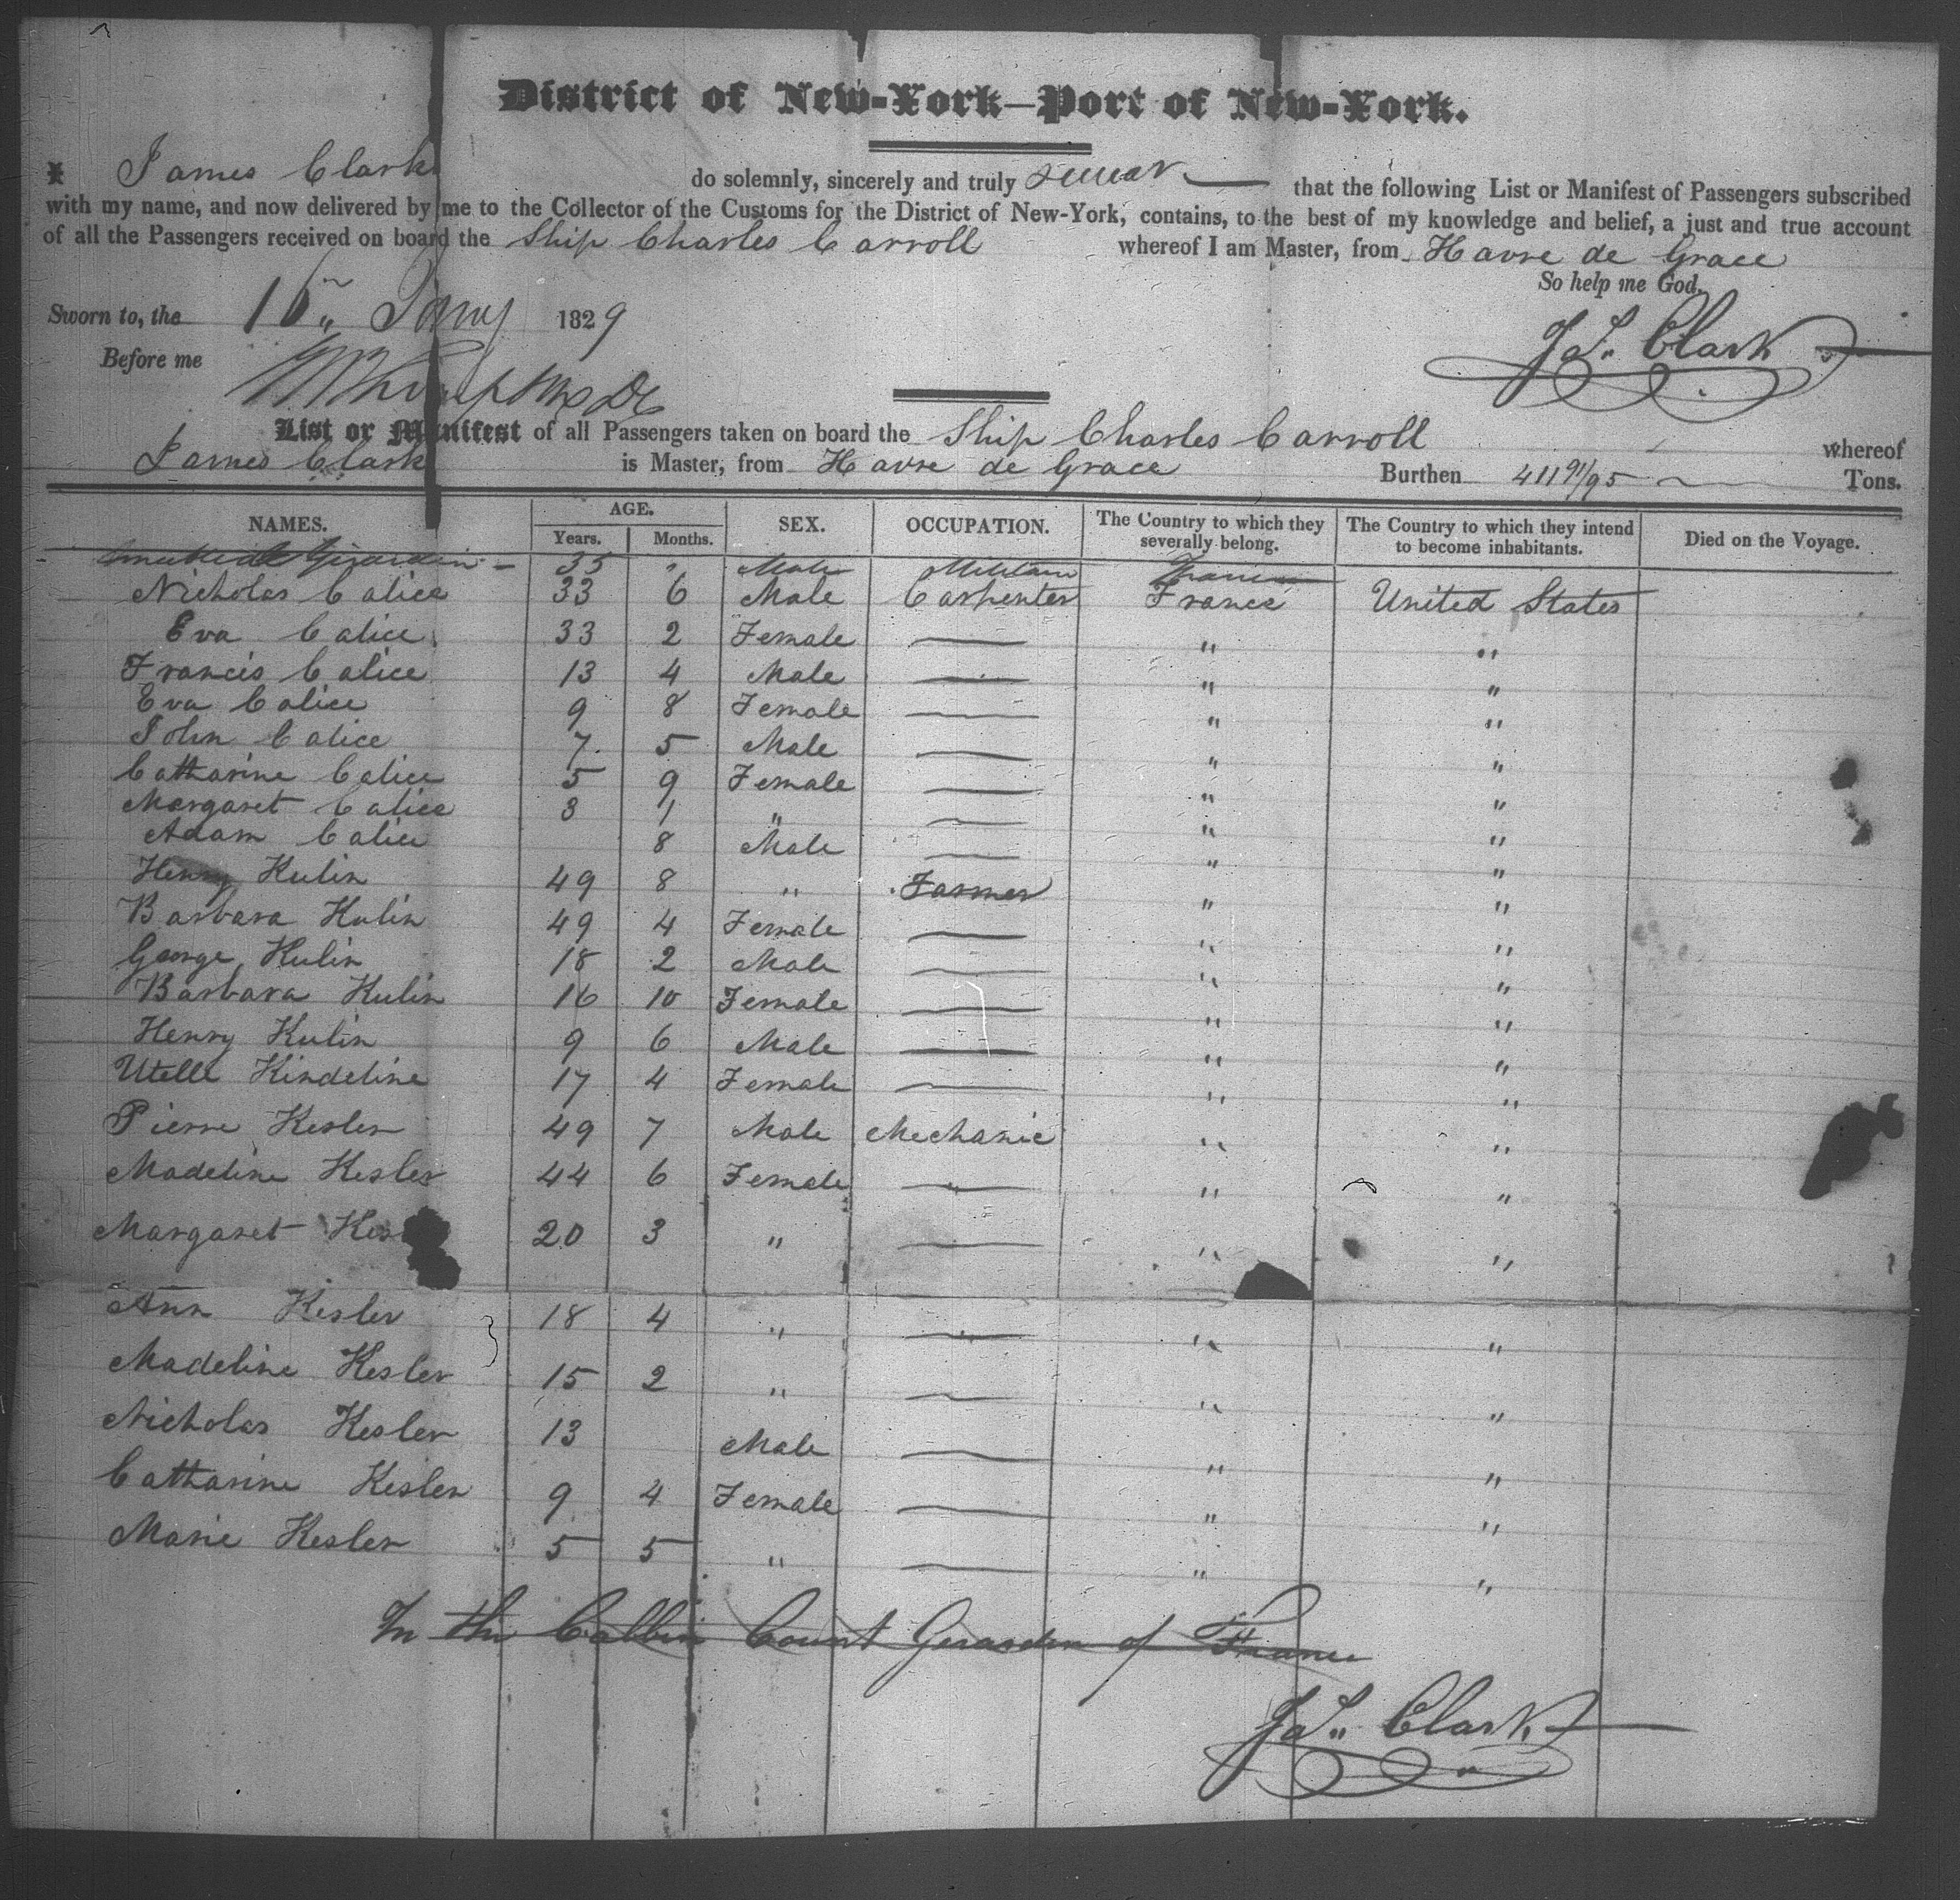 District of New-York—Port of New-York.
I James Clark do solemnly, sincerely and truly swear that the following List or Manifest of Passengers subscribed
with my name, and now delivered by me to the Collector of the Customs for the District of New-York, contains, to the best of my knowledge and belief, a just and true account
of all the Passengers received on board the Ship Charles Carroll whereof I am Master, from Havre de Grace
So help me God.
Sworn to, the 15 Jany 1829
Js. Clark
Before me
List or Manifest of all Passengers taken on board the Ship Charles Carroll whereof
James Clark is Master, from Havre de Grace Burthen 411 91/95 Tons.
NAMES. AGE. Years. Months. SEX. OCCUPATION. The Country to which they severally belong. The Country to which they intend to become inhabitants. Died on the Voyage.
Girardin 35 " Male France
Nicholas Calice 33 6 Male Carpenter France United States
Eva Calice 33 2 Female — " "
Francis Calice 13 4 Male — " "
Eva Calice 9 8 Female — " "
John Calice 7 5 Male — " "
Catharine Calice 5 9 Female — " "
Margaret Calice 3 1 " — " "
Adam Calice 8 Male — " "
Henry Kulin 49 8 " Farmer " "
Barbara Kulin 49 4 Female — " "
George Kulin 18 2 Male — " "
Barbara Kulin 16 10 Female — " "
Henry Kulin 9 6 Male — " "
Utelle Kindeline 17 4 Female — " "
Pierre Kesler 49 7 Male Mechanic " "
Madeline Kesler 44 6 Female — " "
Margaret Kes 20 3 " — " "
Ann Kesler 18 4 " — " "
Madeline Kesler 15 2 " — " "
Nicholas Kesler 13 Male — " "
Catharine Kesler 9 4 Female — " "
Marie Kesler 5 5 " — " "
In the Cabbin Count Gerardin of France
Js. Clark